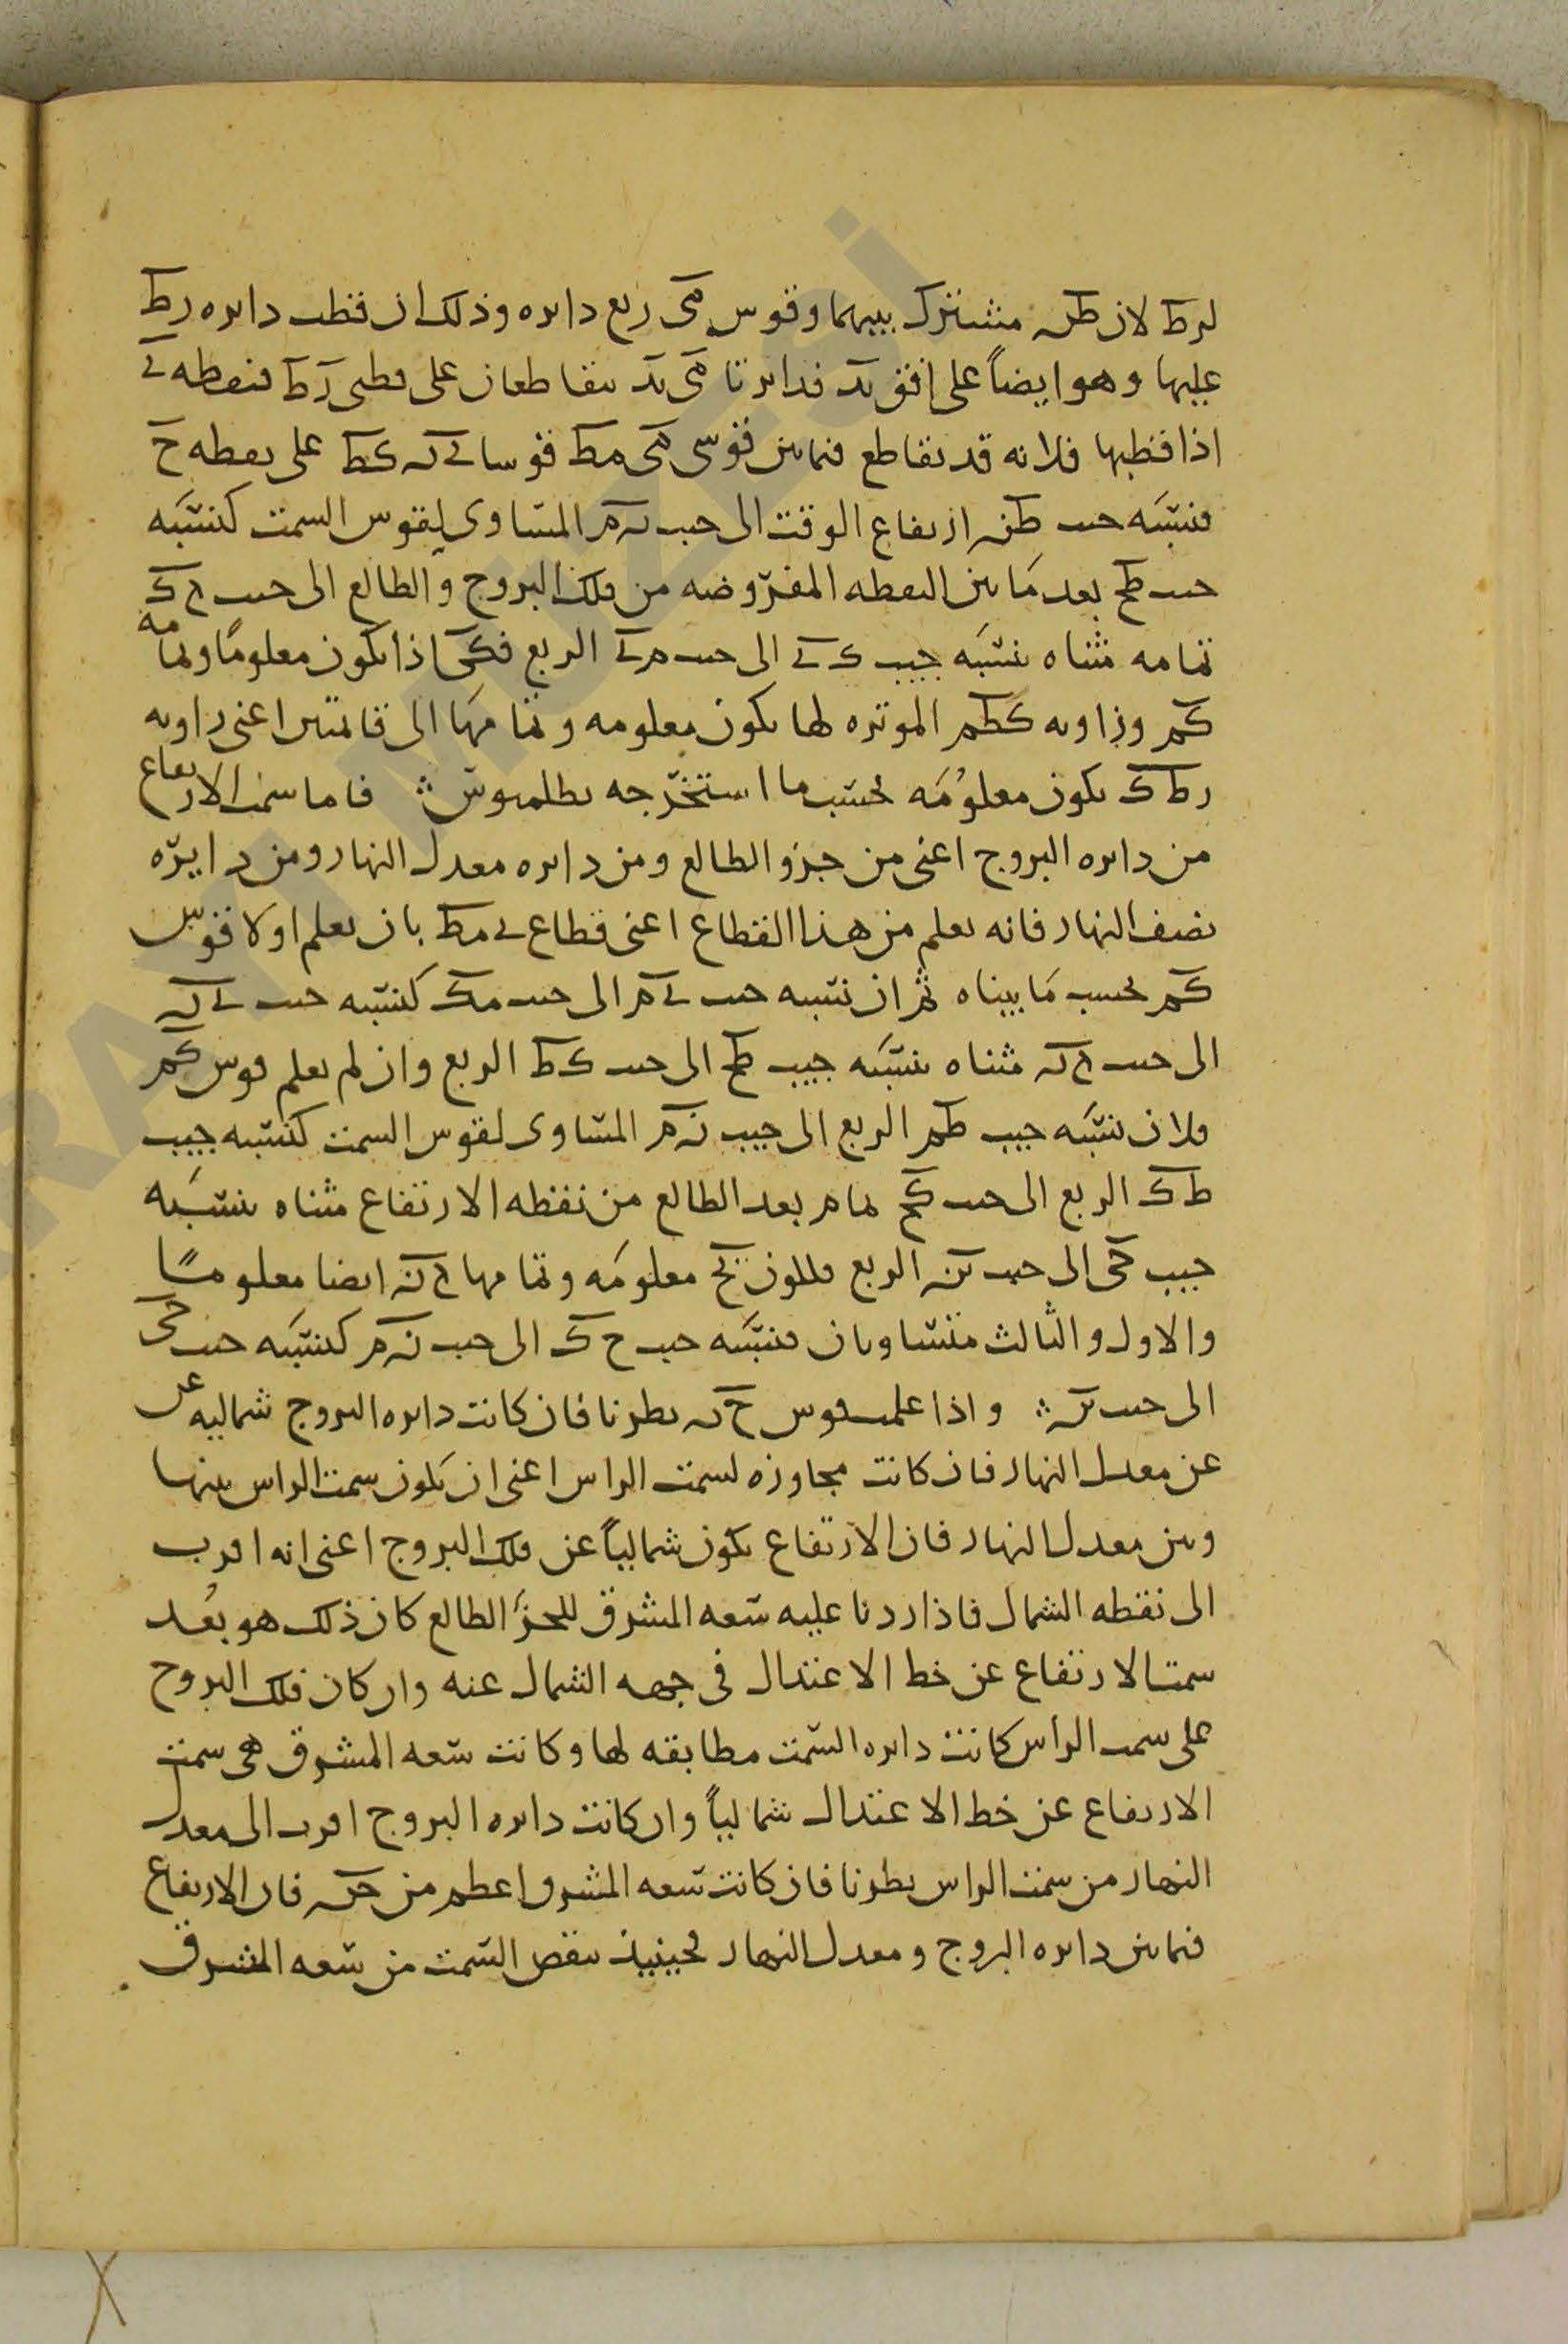 لرط لان طنه مشترك بينهما وقوس مى ربع دائره وذلك ان قطب دايره رط
عليها وهو ايضاً على افق بد فدايرتا مى بد يتقاطعان على قطبى رط فنقطه ى
اذا قطبها فلانه قد تقاطع فيما بين قوسى مى مط قوسا ى نه كط على نقطه ح
فنسبه جيب طنه ارتفاع الوقت الى جيب نه م المساوى لقوس السمت كنسبه
جيب طح بعد ما بين النقطه المفروضه من فلك البروج والطالع الى جيب ح ك
تمامه مثناه بنسبه جيب ك ى الى جيب م ى الربع فكى اذا يكون معلوماً وتمامه
كم وزاويه كطم الموتره لها يكون معلومه وتمامها الى قائمتين اعنى زاويه
رطك يكون معلومه بحسب ما استخرجه بطلميوس فاما سمت الارتفاع
من دايره البروج اعنى من جزو الطالع ومن دايره معدل النهار ومن دايره
نصف النهار فانه يعلم من هذا القطاع اعنى قطاع ى مط بان يعلم اولا قوس
كم بحسب ما بيناه ثم ان نسبه جيب ى م الى جيب مك كنسبه جيب ى نه
الى جيب ح نه مثناه بنسبه جيب طح الى جيب ك ط الربع وان لم يعلم قوس كم
فلان نسبه جيب طم الربع الى جيب نه م المساوى لقوس السمت كنسبه جيب
طك الربع الى جيب كح تمام بعد الطالع من نقطه الارتفاع مثناه بنسبه
جيب حى الى جيب ى نه الربع فيكون يح معلومه وتمامها ح نه ايضا معلومًا
والاول والثالث متساويان فنسبه جيب ح ك الى جيب نه م كنسبه جيب حى
الى جيب ى نه واذا علمت قوس ح نه نظرنا فان كانت دايره البروج شماليه عن
عن معدل النهار فان كانت مجاوزه لسمت الراس اعنى ان يكون سمت الراس بينها
وبين معدل النهار فان الارتفاع يكون شمالياً عن فلك البروج اعنى انه اقرب
الى نقطه الشمال فاذا زدنا عليه سعه المشرق للجزء الطالع كان ذلك هو بُعد
سمت الارتفاع عن خط الاعتدال فى جهه الشمال عنه وان كان فلك البروج
على سمت الراس كانت دايره السمت مطابقه لها وكانت سعه المشرق هى سمت
الارتفاع عن خط الاعتدال شمالياً وان كانت دايره البروج اقرب الى معدل
النهار من سمت الراس نظرنا فان كانت سعه المشرق اعظم من ح نه فان الارتفاع
فيما بين دايره البروج ومعدل النهار فحينيذ ينقص السمت من سعه المشرق